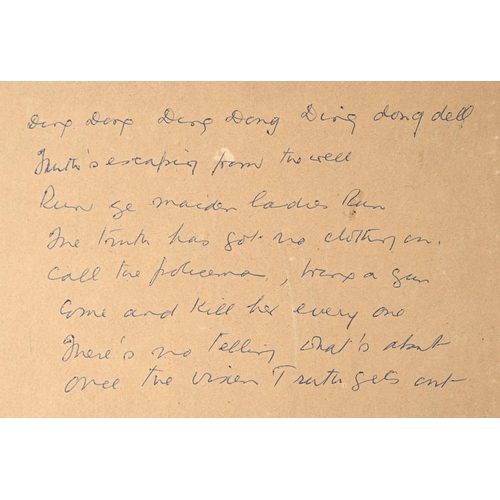 Ding Dong Ding Dong Ding dong dell
Truth's escaping from the well
Run ye maiden ladies Run
The truth has got no clothing on.
Call the policeman, bring a gun
Come and Kill her every one
There's no Telling what's about
Once the vixen Truth gets out